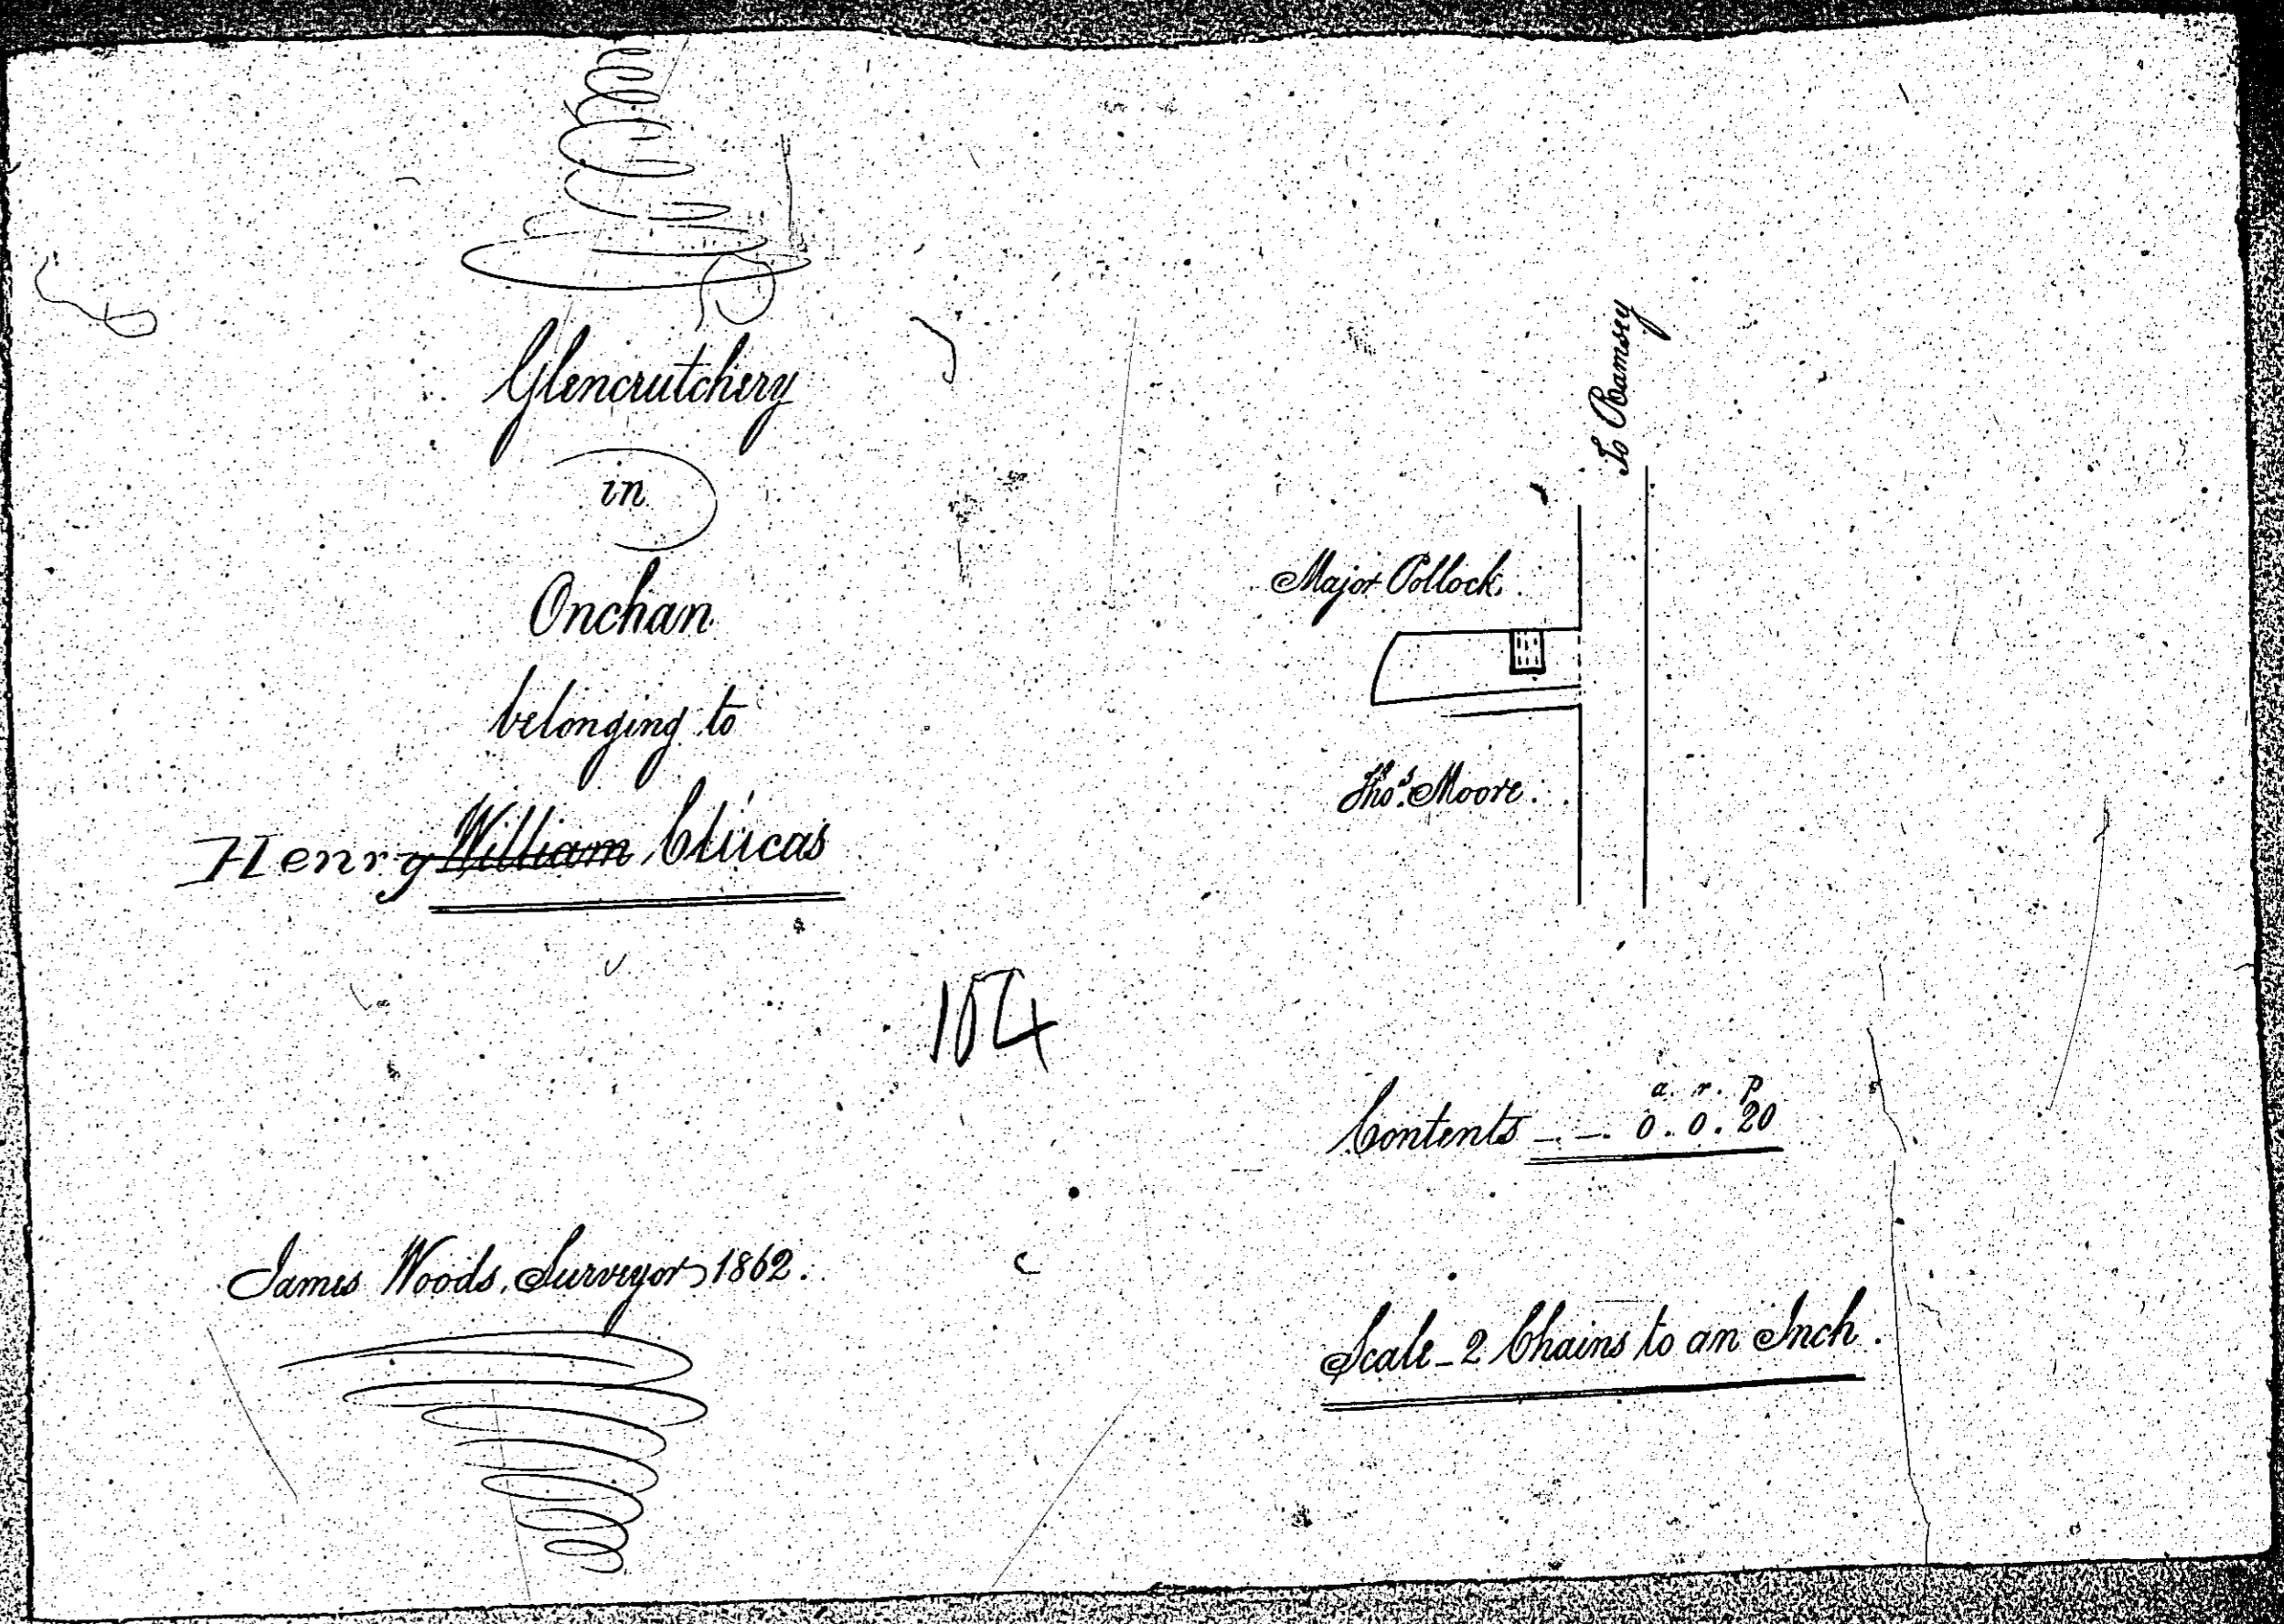 Glencrutchery
in
Onchan
belonging to
Henry William Clucas
James Woods. Surveyor, 1862.
104
To Ramsey
Major Pollock.
Thos. Moore.
a. r. p
Contents _ _ 0. 0. 20
Scale _ 2 Chains to an Inch.